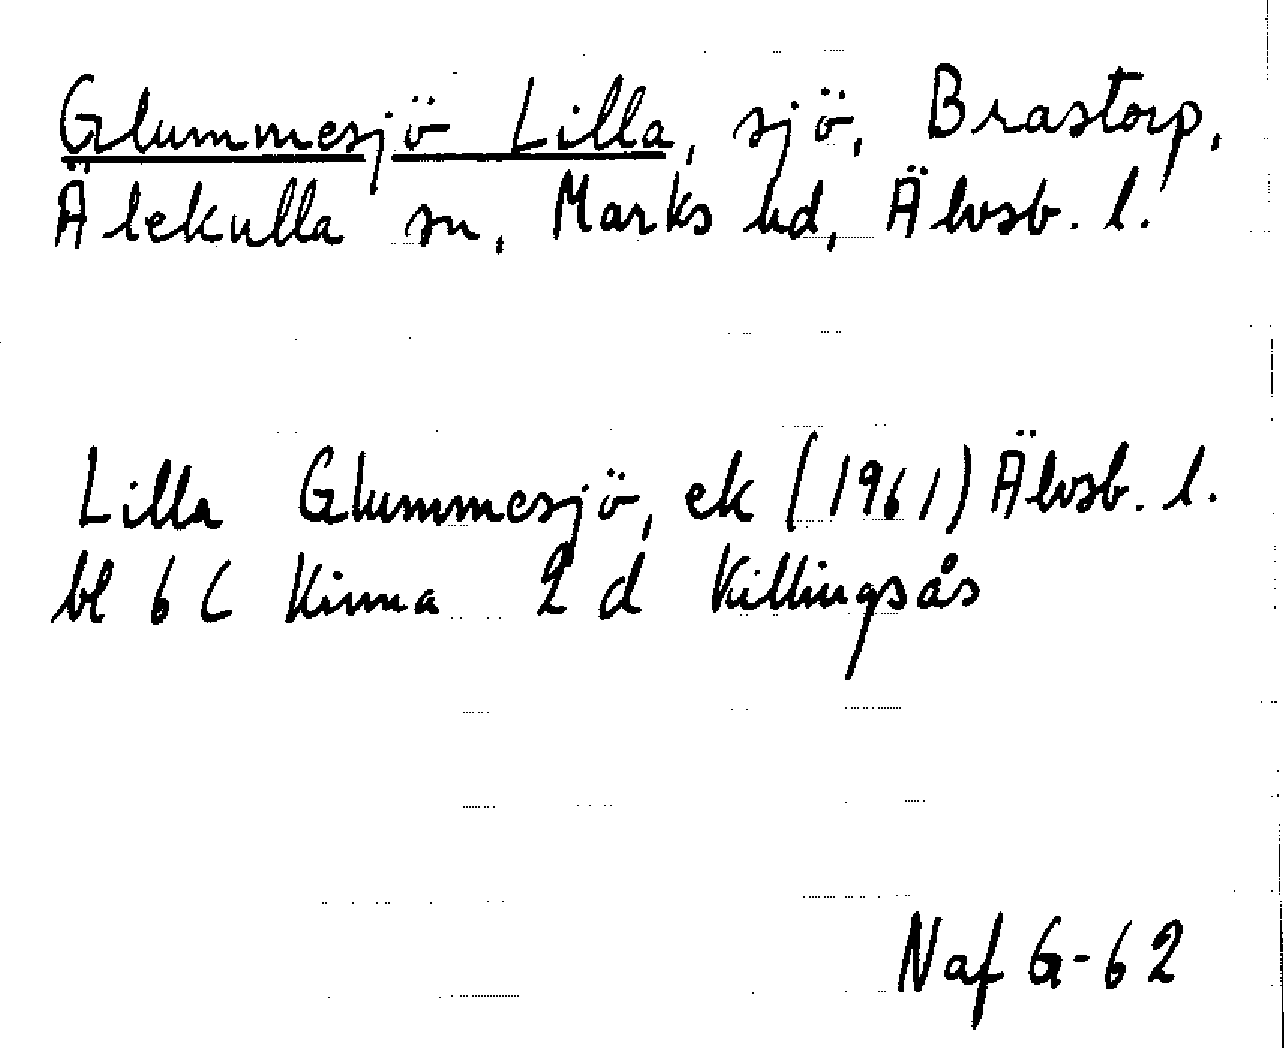 Glummesjö Lilla, sjö, Brastorp,
Älekulla sn, Marks hd, Älvsb. l.
Lilla Glummesjö, ek (1961) Älvsb. l.
bl 6 C Kinna 2 d Killingsås
Naf G-62